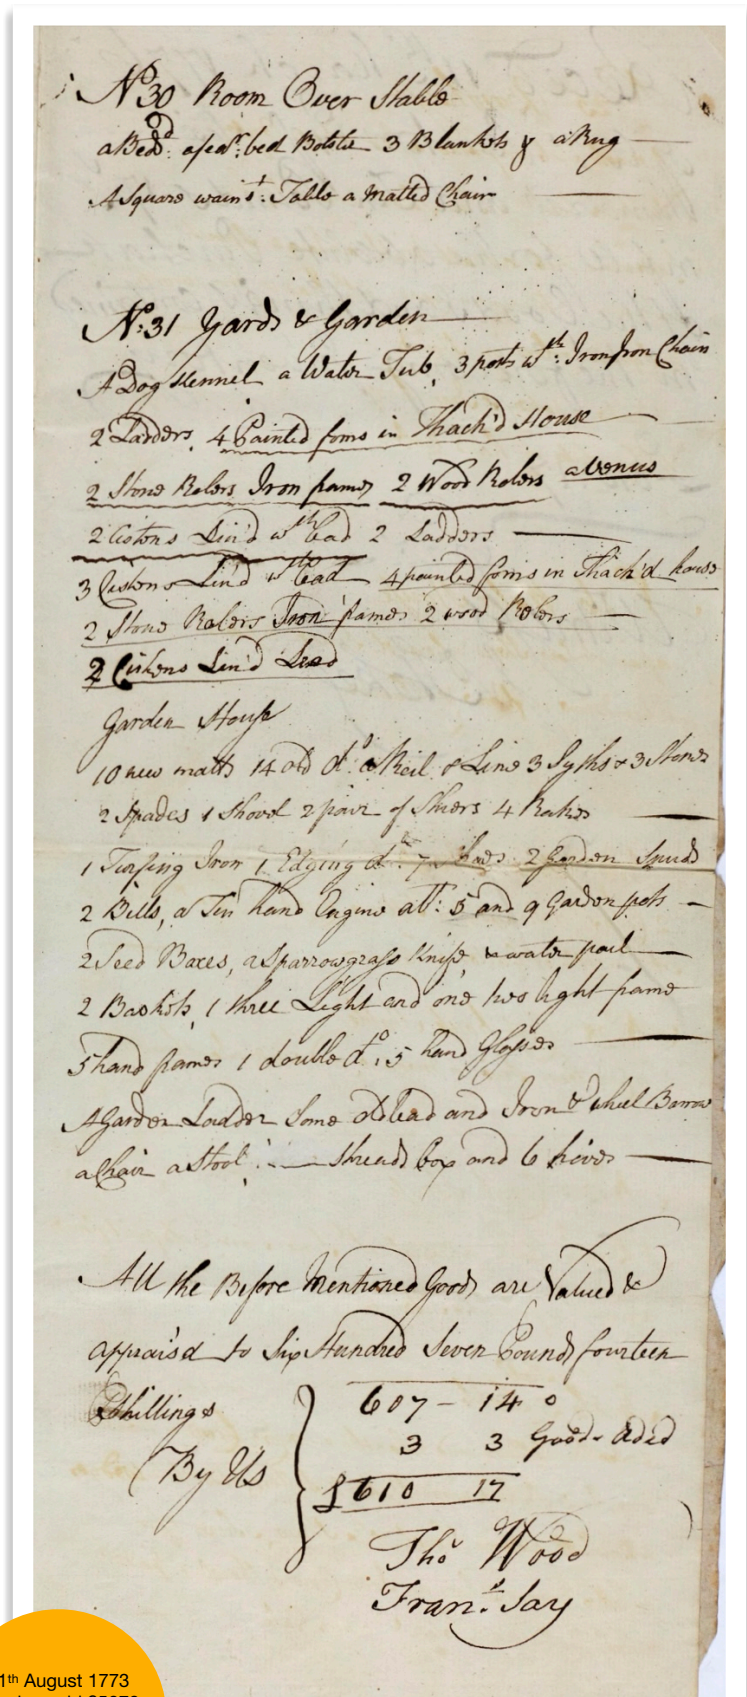 No 30 Room Over Stable
a Bedd: a fear: bed Bolster 3 Blankets & a Rug
A Square waint: Table a Matted Chair
No: 31 Yards & Garden
A Dog Kennel a Water Tub, 3 posts wth: Iron Iron Chain
2 Ladders, 4 Painted forms in Thach'd House
2 Stone Rolers Iron frames 2 Wood Rolers a Venus
2 Cistons Lin'd wth Lead 2 Ladders
3 Cistens Lin'd wth Lead 4 painted forms in Thach'd house
2 Stone Rolers Iron frames 2 wood Rolers
2 Cistens Lin'd Lead
Garden House
10 new matts 14 old do a Reil & Line 3 Syths & 3 Stones
2 Spades 1 Shovel 2 pair of Shiers 4 Rakes
1 Turfing Iron 1 Edging do: 7 hoes 2 Garden Spuds
2 Bills, a Tin hand Engine 5 and 9 Garden pots
2 Seed Boxes, a Sparrowgrass Knife & water pail
2 Baskets, 1 three Light and one two light frame
5 hand frames 1 double do, 5 hand Glasses
A Garden Ladder Some old lead and Iron Wheel Barrow
a Chair a Stool Shreads box and 6 hives
All the Before Mentioned Goods are Valued &
apprais'd to Six Hundred Seven Pounds fourteen
Shillings
607 - 14 0
3 3 Goods Aded
By Us
£610 17
Thos Wood
Frans. Say
1th August 1773